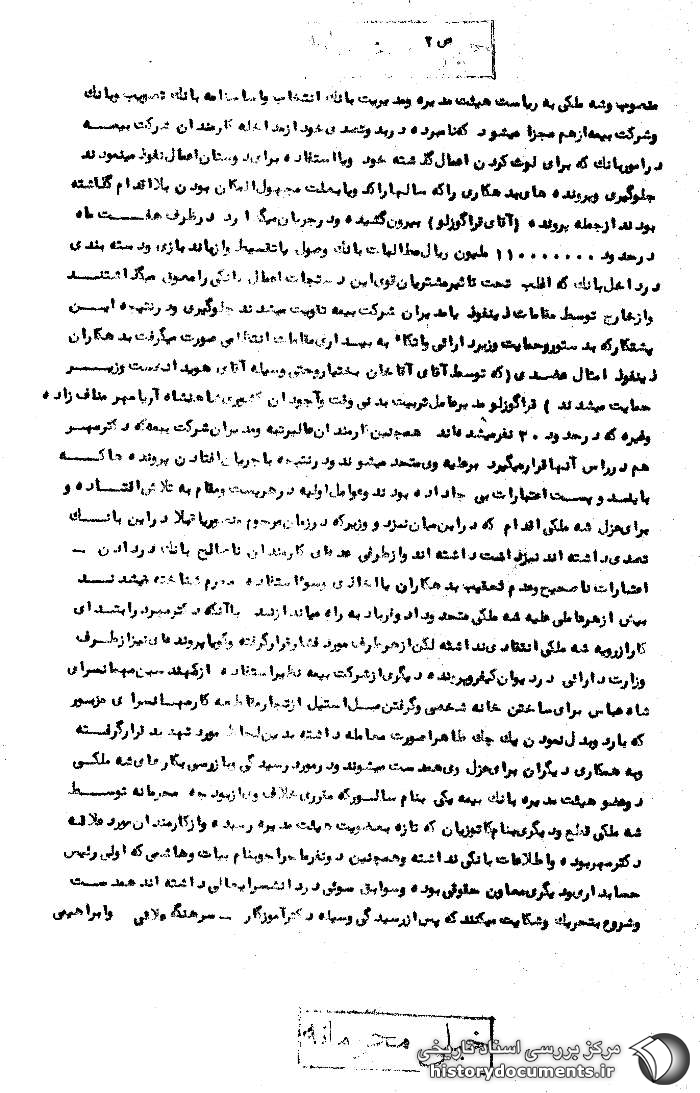 ص ۲
منصوب وشه ملکی به ریاست هیئت مدیره ومدیریت بانک انتخاب واساسنامه بانک تصویب وبانک
وشرکت بیمه ازهم مجزا میشود که نامبرده دربدوتصدی خود ازمداخله کارمندان شرکت بیمه
درامور بانک که برای لوث کردن اعمال گذشته خود ویا استفاده برای دوستان اعمال نفوذ مینمودند
جلوگیری وپرونده های بدهکاری را که سالها راکد ویا بعلت مجهول المکان بودن بلااقدام گذاشته
بودند ازجمله پرونده (آقای قراگوزلو) بیرون کشیده ودرجریان میگذارد درظرف هفت ماه
درحدود ۱۱۰۰۰۰۰۰۰ ملیون ریال مطالبات بانک وصول یا تقسیط وازباند بازی ودسته بندی
درداخل بانک که اغلب تحت تاثیر مشتریان قوی این دستجات اعمال بانکی را معوق میگذاشتند
وازخارج توسط مقامات ذینفوذ با مدیران شرکت بیمه تقویت میشدند جلوگیری ودرنتیجه این
پشتکار که بدستور وحمایت وزیر دارائی واتکاء به بیداری مقامات انتظامی صورت میگرفت بدهکاران
ذینفوذ امثال عضدی (که توسط آقای آقاخان بختیار وحتی وسیله آقای هویدا نخست وزیر
حمایت میشدند) قراگوزلو مدیرعامل تربیت بدنی وقت وآجودان کشوری شاهنشاه آریامهر مناف زاده
وغیره که درحدود ۲۰ نفر میشده اند همچنین کارمندان عالیرتبه ومدیران شرکت بیمه که دکترمهر
هم درراس آنها قرار میگیرد برعلیه وی متحد میشوند ودرنتیجه با جریان افتادن پرونده ها که
با یاسد وبست اعتبارات بی جا داده بودند وعوامل اولیه درهرپست ومقام به تلاش افتاده و
برای عزل شه ملکی اقدام که دراین میان نمزد و وزیر که درزمان مرحوم منصور قبلا دراین بانک
تصدی داشته اند نیز داشته اند وازطرفی عده ای کارمندان ناصالح بانک دردادن -
اعتبارات ناصحیح وعدم تعقیب بدهکاران با اخاذی وسوء استفاده مجرم شناخته میشدند
بیش ازهرعاملی علیه شه ملکی متحد وداد وفریاد به راه میاندازند باآنکه دکترمهر درابتدای
کار ازرویه شه ملکی انتقادی نداشته لکن ازهرطرف مورد فشار قرارگرفته وگویا پرونده ای نیز ازطرف
وزارت دارائی دردیوان کیفر وپرونده دیگری ازشرکت بیمه نظیر استفاده ازکمیسیون مهمانسرای
شاه عباس برای ساختن خانه شخصی وگرفتن مبل استیل ازتجار مقاطعه کار مهمانسرای مزبور
که با رد وبدل نمودن یک چک ظاهرا صورت معامله داشته بدین لحاظ مورد تهدید قرارگرفته
وبه همکاری دیگران برای عزل وی همدست میشوند ودرمورد رسیدگی وبازرسی بکارهای شه ملکی
دوعضو هیئت مدیره بانک بیمه یکی بنام سالور که مقرری خلاف وی ازبودجه محرمانه توسط
شه ملکی قطع ودیگری بنام کاتوزیان که تازه بعضویت هیئت مدیره رسیده وازکارمندان مورد علاقه
دکترمهر بوده واطلاعات بانکی نداشته وهمچنین دونفر ماجراجو بنام بیات وهاشمی که اولی رئیس
حسابداری ودیگری معاون حقوقی بوده وسوابق سوئی دردانشسرایعالی داشته اند همدست
وشروع بتحریک وشکایت میکنند که پس ازرسیدگی وسیله دکترآموزگار - سرهنگ علائی وابراهیمی
خیلی محرمانه
مرکز بررسی اسناد تاریخی
historydocuments.ir